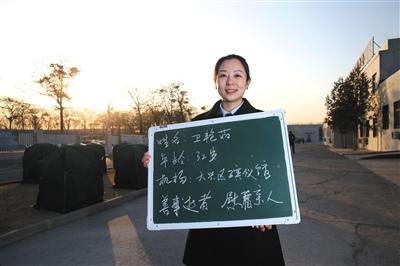 姓名：卫艳茹
年龄：32岁
机构：大兴区殡仪馆
善事逝者 慰藉京人